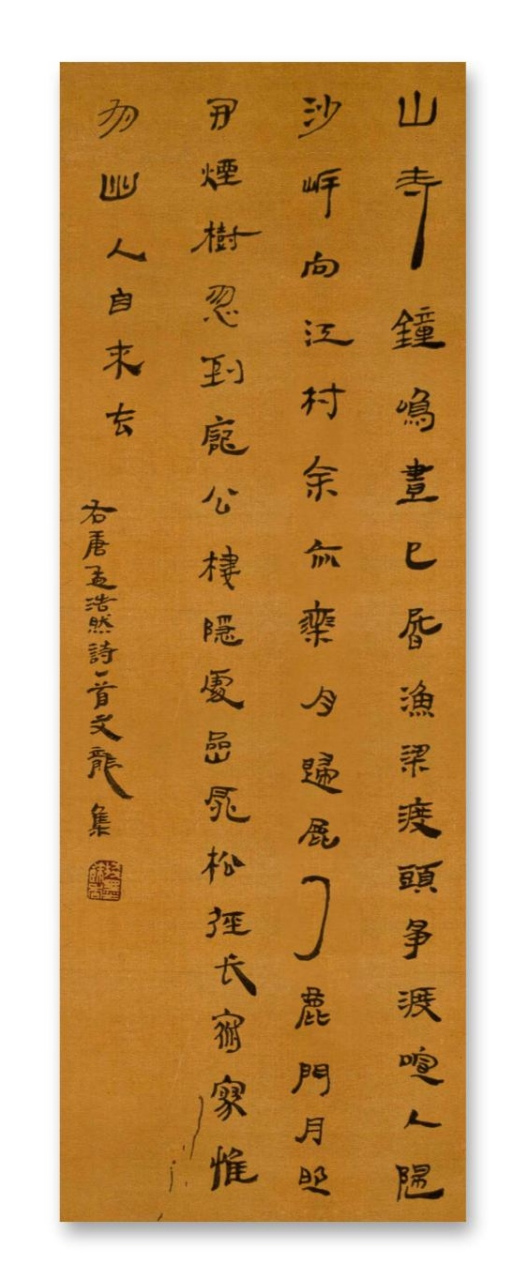 山寺鐘鳴晝已昏漁梁渡頭爭渡喧人隨
沙岸向江村余亦乘舟歸鹿門鹿門月照
開煙樹忽到龐公棲隱處岩扉松徑長寂寥惟
有幽人自來去
右唐孟浩然詩一首文龍集